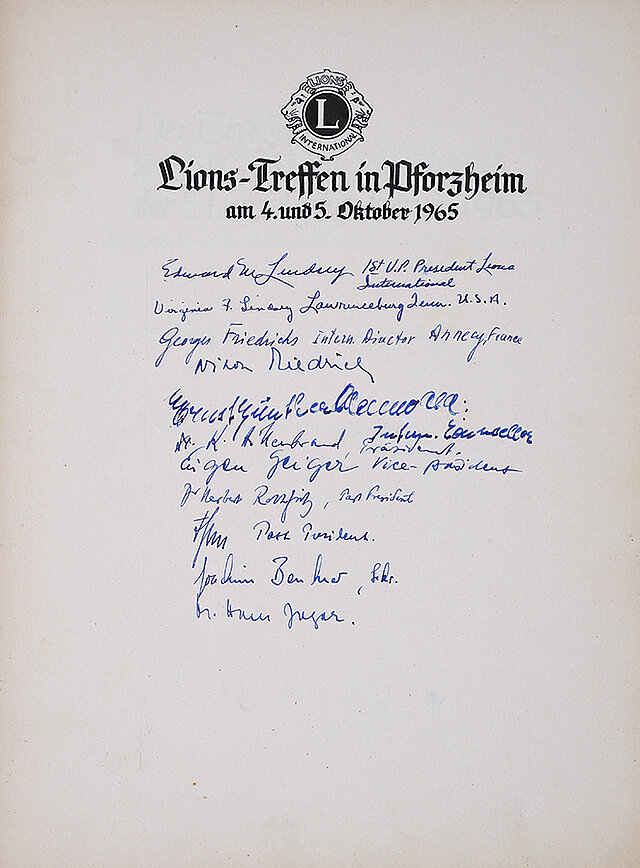 LIONS
L
INTERNATIONAL
Lions-Treffen in Pforzheim
am 4. und 5. Oktober 1965
Edward M. Lindsey 1st V.P. President Lions
International
Virginia F. Lindsey Lawrenceburg Tenn. U.S.A.
Georges Friedrichs Intern Director Annecy, France
Friedrich
Ernst Günther
Dr. K. Präsident.
Intern. Counsellor
Eugen Geiger Vice-präsident
Dr Herbert Past President
Past President.
Joachim Sekr.
Dr. Hans